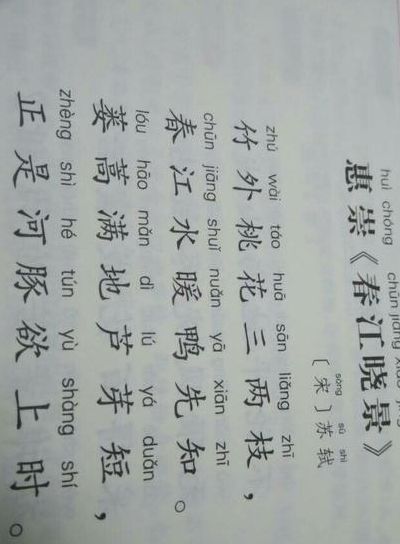 huì chóng chūn jiāng xiǎo jǐng
惠崇《春江晓景》
sòng sū shì
〔宋〕苏轼
zhú wài táo huā sān liǎng zhī
竹外桃花三两枝，
chūn jiāng shuǐ nuǎn yā xiān zhī
春江水暖鸭先知。
lóu hāo mǎn dì lú yá duǎn
蒌蒿满地芦芽短，
zhèng shì hé tún yù shàng shí
正是河豚欲上时。